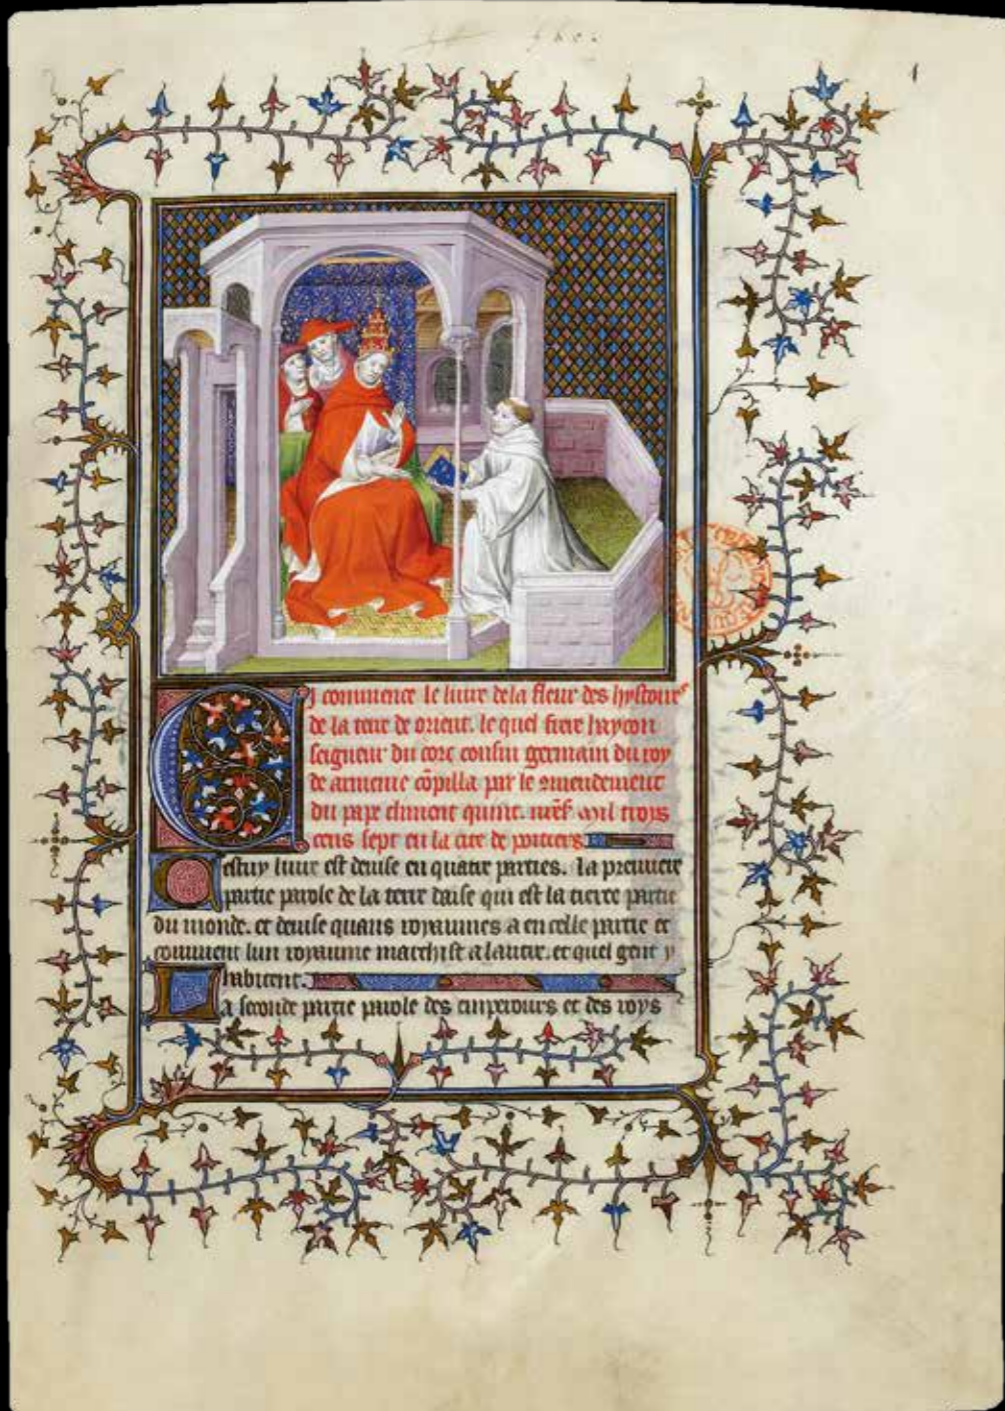 Ci commence le liure dela fleur des hystoires
de la terre de orient. le quel frere hayton
seigneur du corc cousin germain du roy
de armenie cõpilla par le ꝯmendement
du pape climent quint.
mil troys
cens sept en la cite de poitiers.
Cestuy liure est deuise en quatre parties. la premiere
partie parole de la terre daise qui est la tierce partie
du monde. et deuise quans royaumes a en celle partie et
comment lun royaume marchist a lautre. et quel gent y
habitent.
La seconde partie parole des emperours et des roys